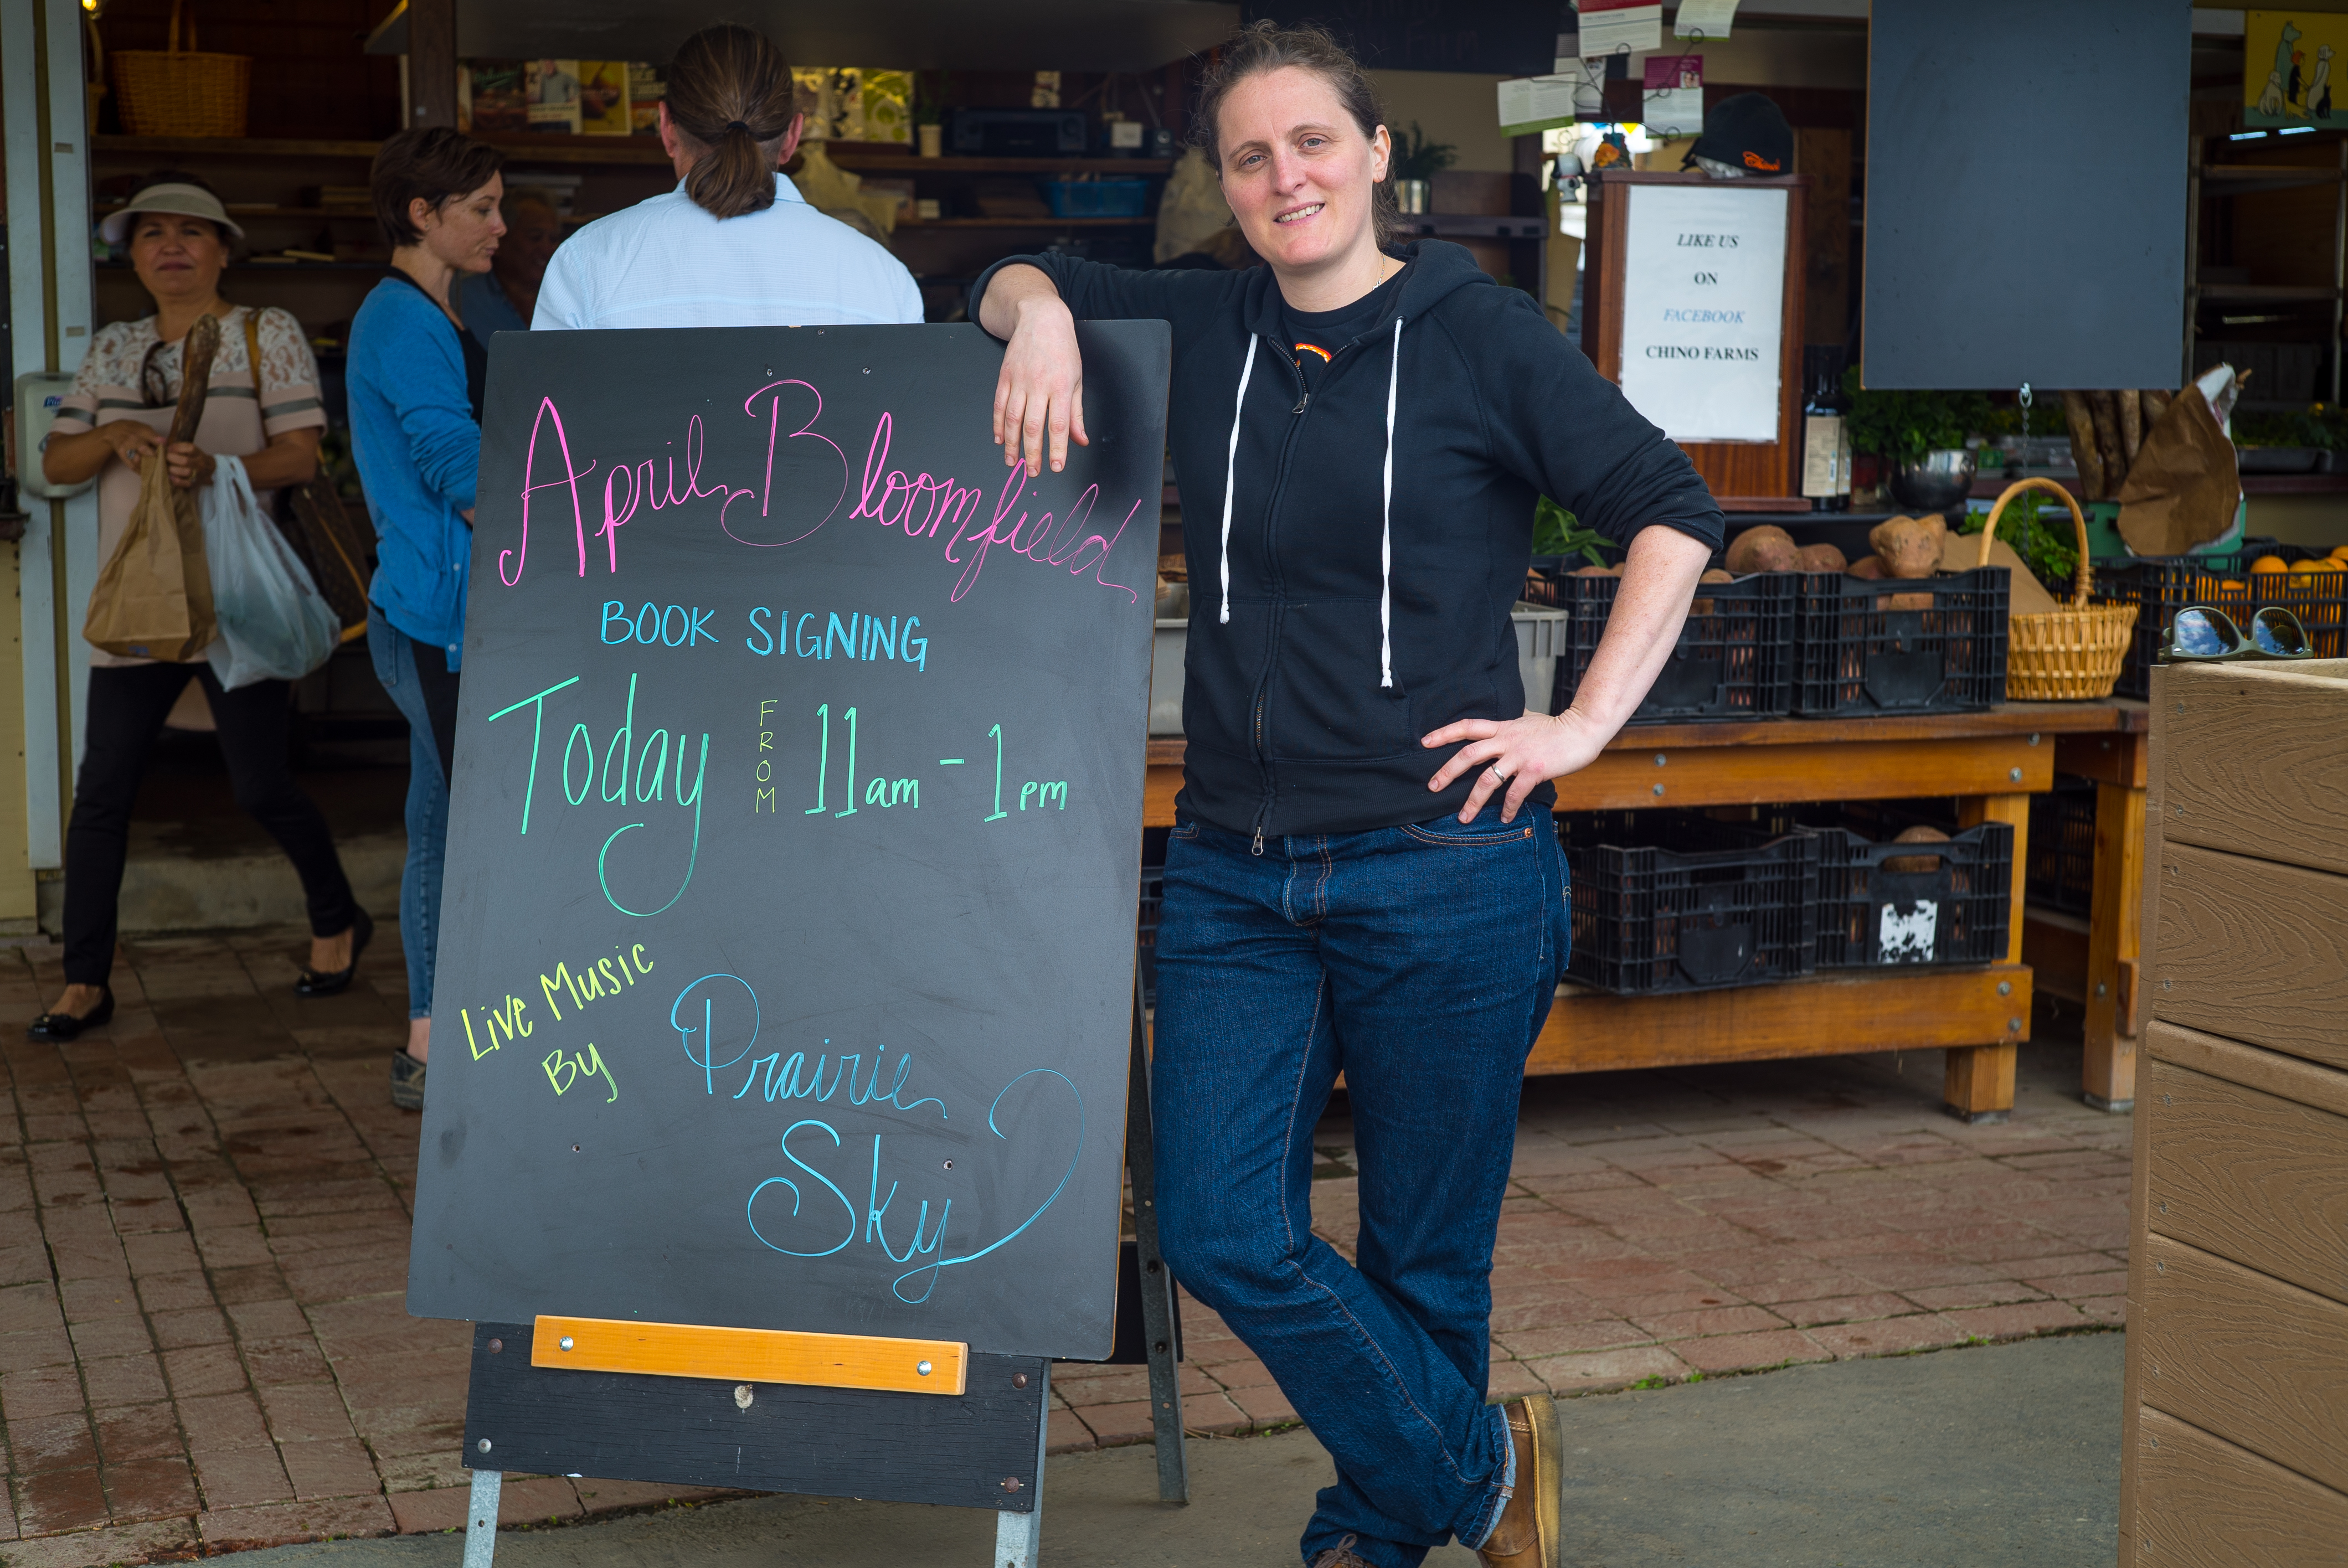 April Bloomfield
BOOK SIGNING
Today FROM 11am - 1pm
Live Music
By
Prairie
Sky
LIKE US
ON
FACEBOOK
CHINO FARMS